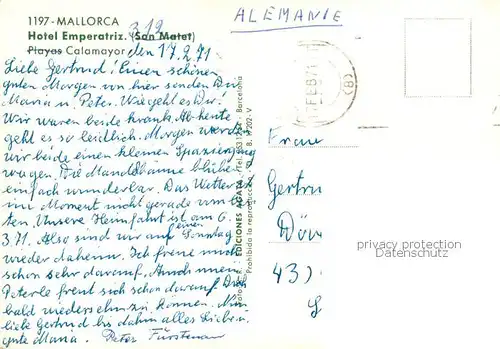 1197 - MALLORCA
Hotel Emperatriz. (San Matet)
Playas Calamayor
319
den 17.2.71
ALEMANIE
Liebe Gertrud! Einen schönen
guten Morgen von hier senden Dir
Maria u. Peter. Wie geht es Dir?
Wir waren beide krank. Ab heute
geht es so leidlich. Morgen werden
wir beide einen kleinen Spaziergang
wagen. Die Mandelbäume blühen
einfach wunderbar. Das Wetter ist
im Moment nicht gerade vom
ten. Unsere Heimfahrt ist am 6.
3.71. Also sind wir auf einen Sonntag
wieder daheim. Ich freue mich
schon sehr darauf. Auch mein
Peterle freut sich schon darauf Dich
bald wiedersehn zu können. Nun
liebe Gertrud bis dahin alles Liebe u.
gute Maria. Peter Fürstenau
EDICIONES
Barcelona
Prohibida la reproducción
Frau
Gertru
Döv
privacy protection
Datenschutz